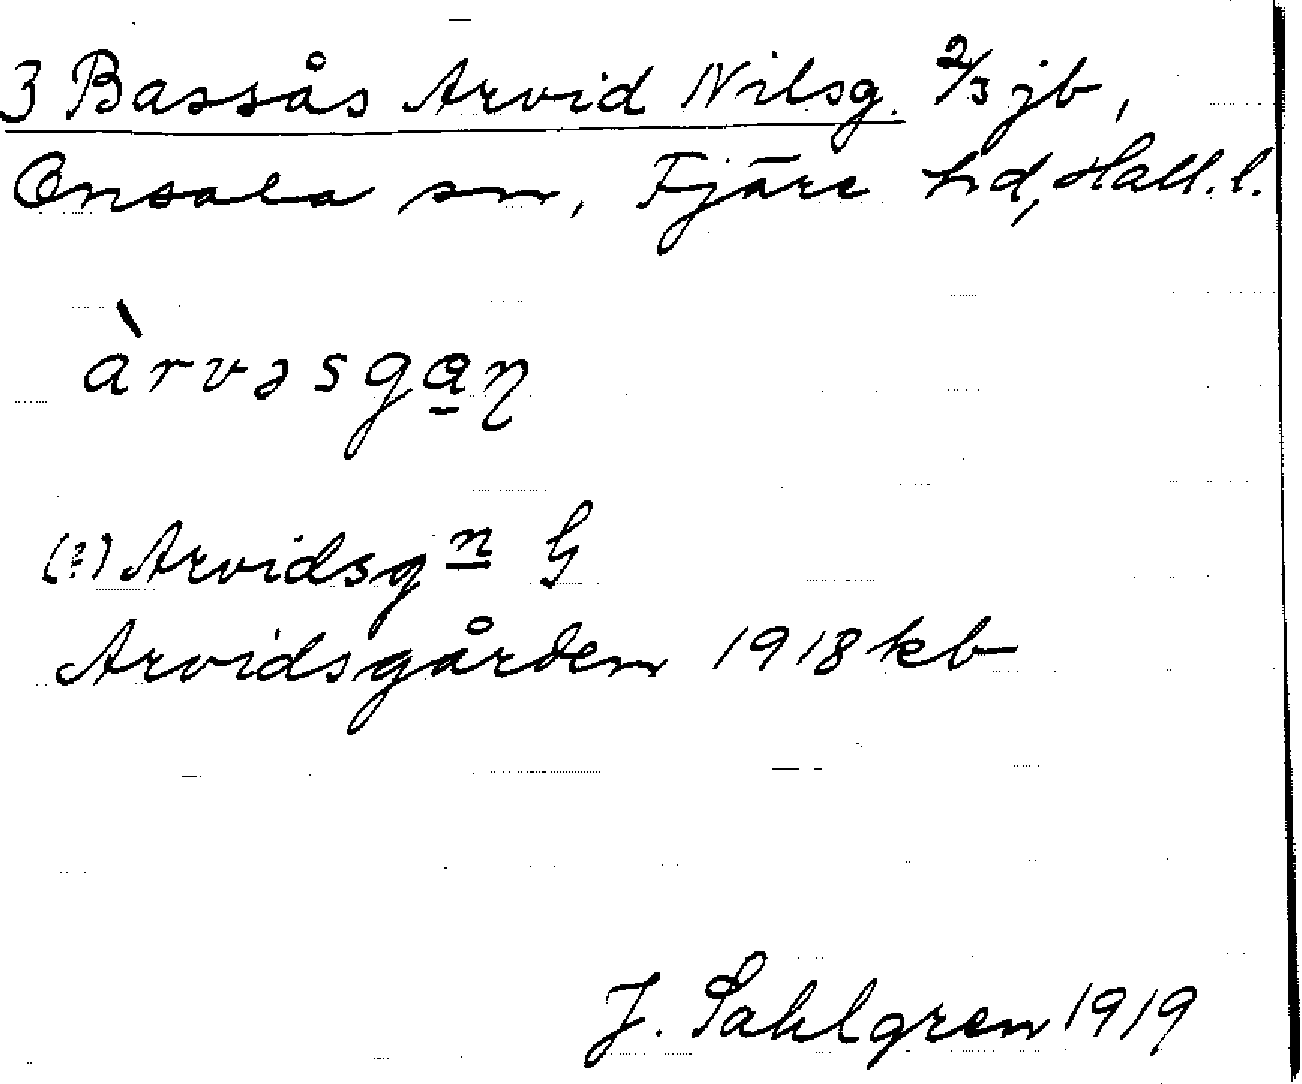 3 Bassås Arvid Nilsg. 2/3 jb,
Onsala sn, Fjäre hd, Hall. l.
àrvəsgaɳ
(?) Arvidsgn G
Arvidsgården 1918 kb
J. Sahlgren 1919